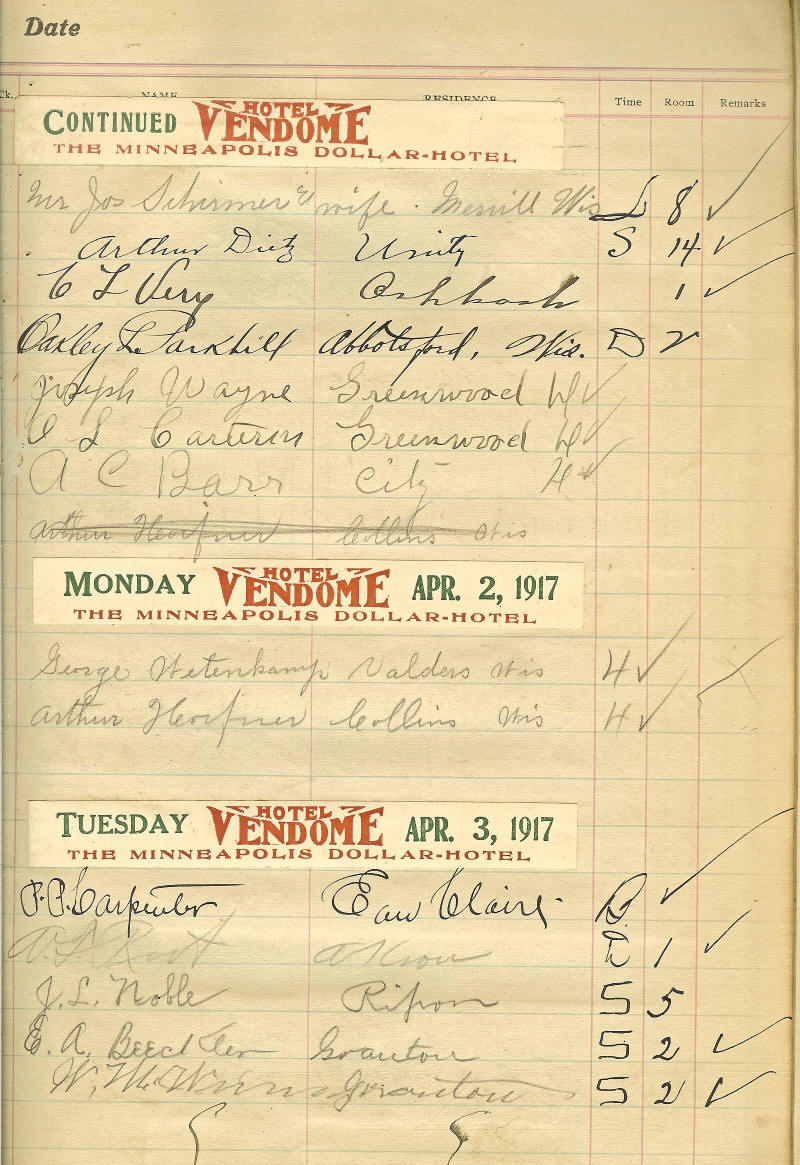 Date
Ck. NAME RESIDENCE Time Room Remarks
CONTINUED HOTEL VENDOME
THE MINNEAPOLIS DOLLAR-HOTEL
Mr Jos Schirmer & wife . Merrill Wis 8
Arthur Dietz Unity S 14
C L Very Oshkosh 1
Oakley L. Parkhill Abbotsford, Wis. D 2
Joseph Wayne Greenwood
L Greenwood
A C Barr City
Arthur Hoefner Collins Wis
MONDAY HOTEL VENDOME APR. 2, 1917
THE MINNEAPOLIS DOLLAR-HOTEL
George Wetenkamp Valders Wis 4
Arthur Hoefner Collins Wis 4
TUESDAY HOTEL VENDOME APR. 3, 1917
THE MINNEAPOLIS DOLLAR-HOTEL
P.P. Carpenter Eau Claire
Akron 1
J. L. Noble Ripon S 5
E. A. Granton S 2
W. Granton S 2